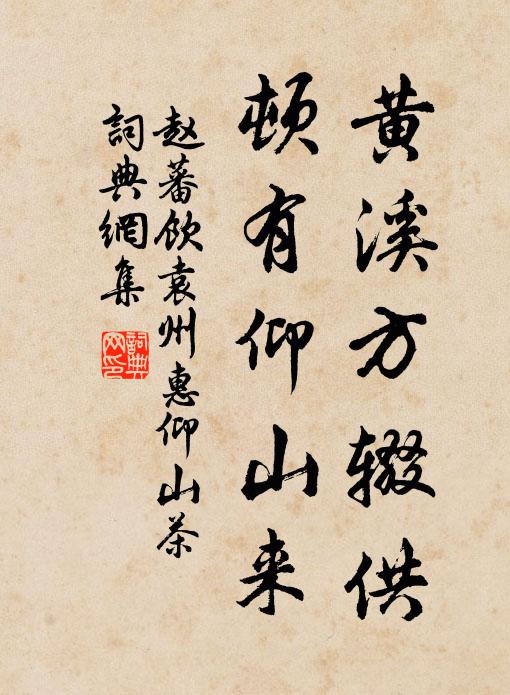 黄溪方辍供
顿有仰山来
赵蕃饮袁州惠仰山茶
詞典網集
詞典網印